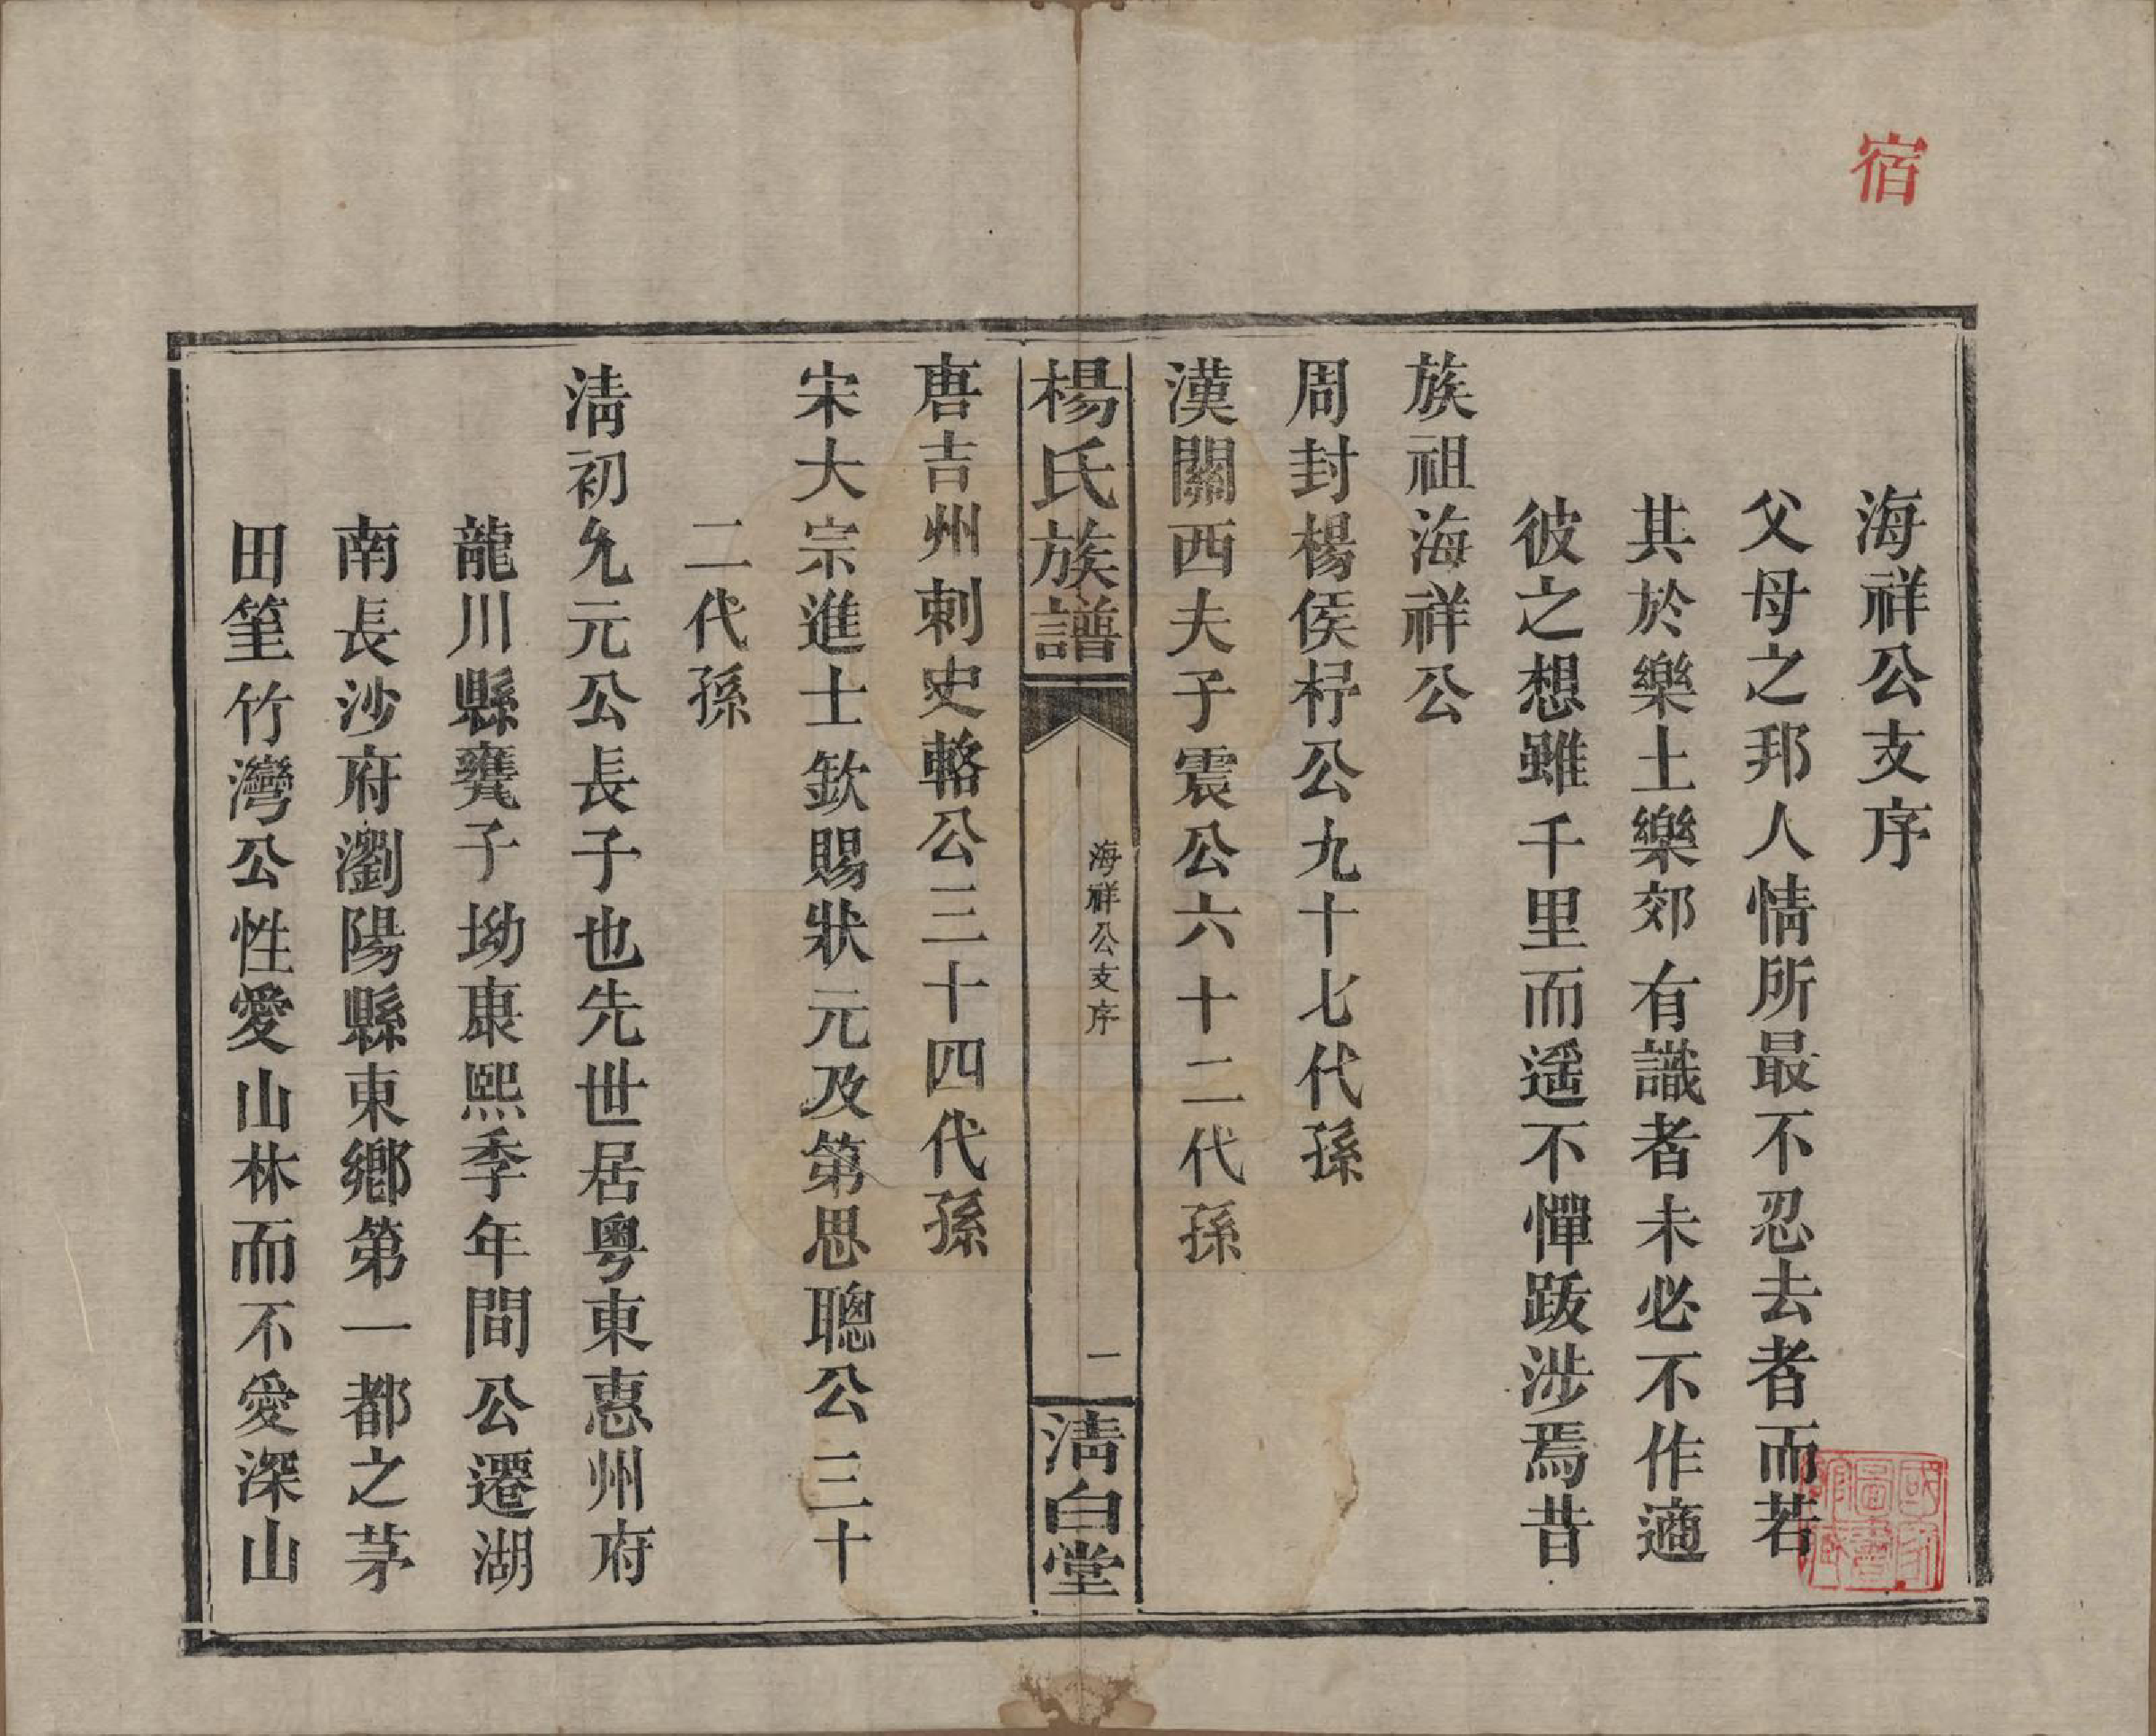 宿
海祥公支序
父母之邦人情所最不忍去者而若
其於樂土樂郊有識者未必不作適
彼之想雖千里而遥不憚跋涉焉昔
族祖海祥公
周封楊侯杼公九十七代孫
漢關西夫子震公六十二代孫
楊氏族譜
海祥公支序
一
清白堂
唐吉州刺史輅公三十四代孫
宋大宗進士欽賜狀元及第思聰公三十
二代孫
清初允元公長子也先世居粵東惠州府
龍川縣甕子坳康熙季年間公遷湖
南長沙府瀏陽縣東鄉第一都之茅
田篁竹灣公性愛山林而不愛深山
國家圖書館藏